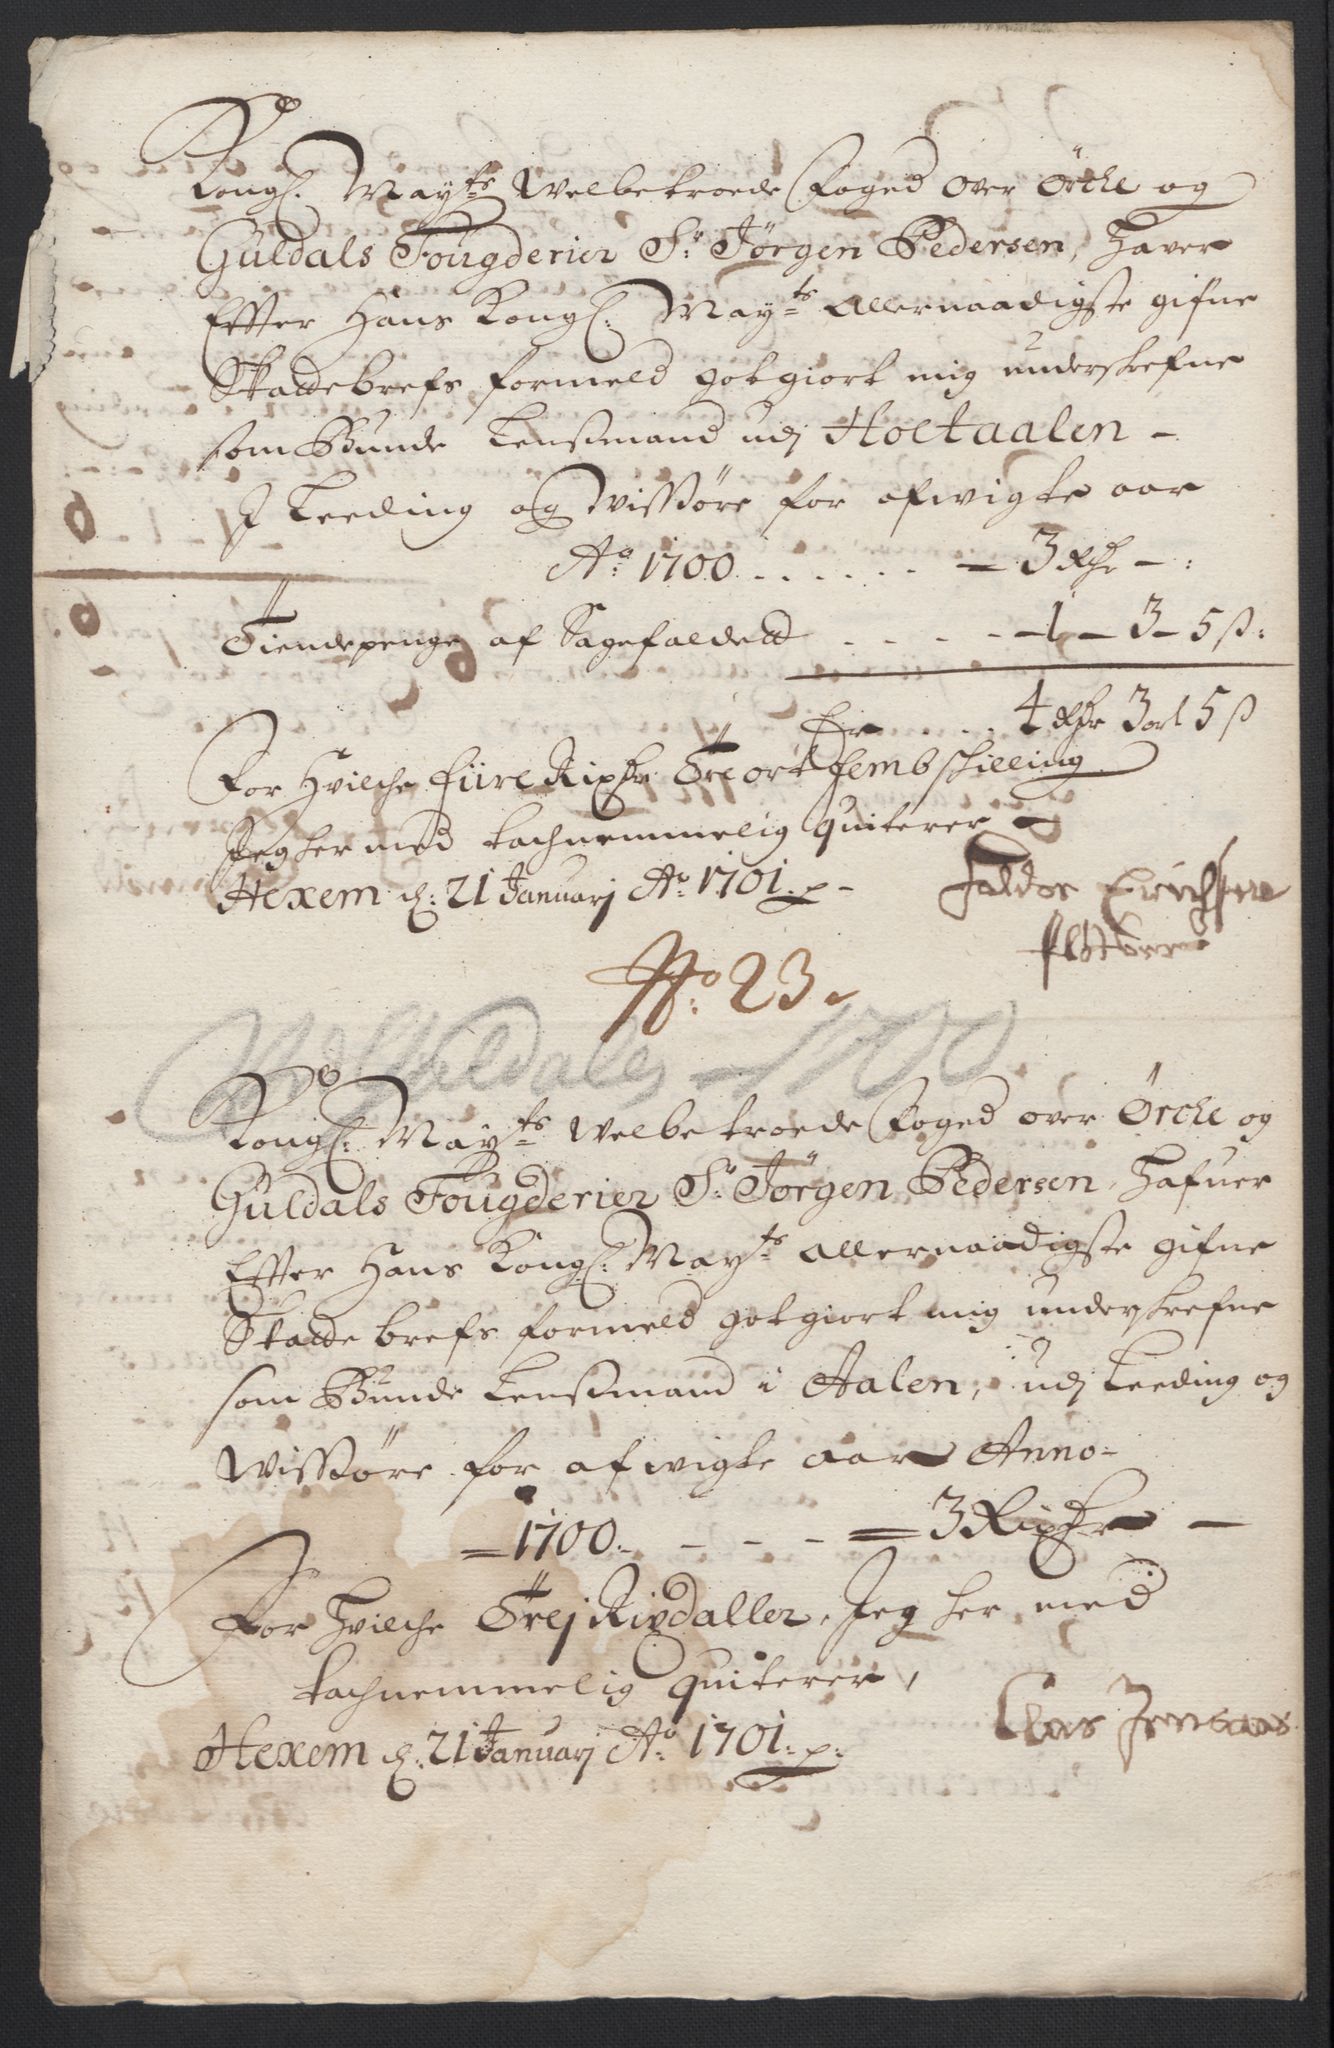 Kongl: Mayts Welbetroede Foged over Örche og
Guldals Fougderier Sr: Jörgen Pedersen, Haver
Effter Hans Kongl: Mayts Allernaadigste gifne
Skattebrefs formeld gotgiort mig underskrefne
som Bunde Lenssmand udj Holtaalen -
I Leeding og Wissöre for afwigte aar
Ao: 1700 . . . . . . - 3 Rdr - :
Tiendepenge af Sagefaldet . . . . - 1 - 3 - 5 ß:
Er . . . . 4 Rdr 3 ort 5 ß
For Hvilche fiire Rixdr Tre ort femb skilling
Jeg her med tachnemmelig quiterer
Hexem d: 21 Januarj Ao 1701. p -
Haldor Erichsen
No: 23.
Guldals 1700
Kongl: Mayts Welbetroede Foged over Örche og
Guldals Fougderier Sr: Jörgen Pedersen, Hafuer
Effter Hans Kongl: Mayts allernaadigste gifne
Skatte brefs formeld gotgiort mig underskrefne
som Bunde Lenssmand i Aalen, udj Leeding og
Wissöre for afwigte aar Anno-
1700. - - - = 3 Rixdr -
For Hvilche Trej Rixdaller, Jeg her med
tachnemmelig quiterer,
Hexem d: 21 Januarj Ao: 1701. p: